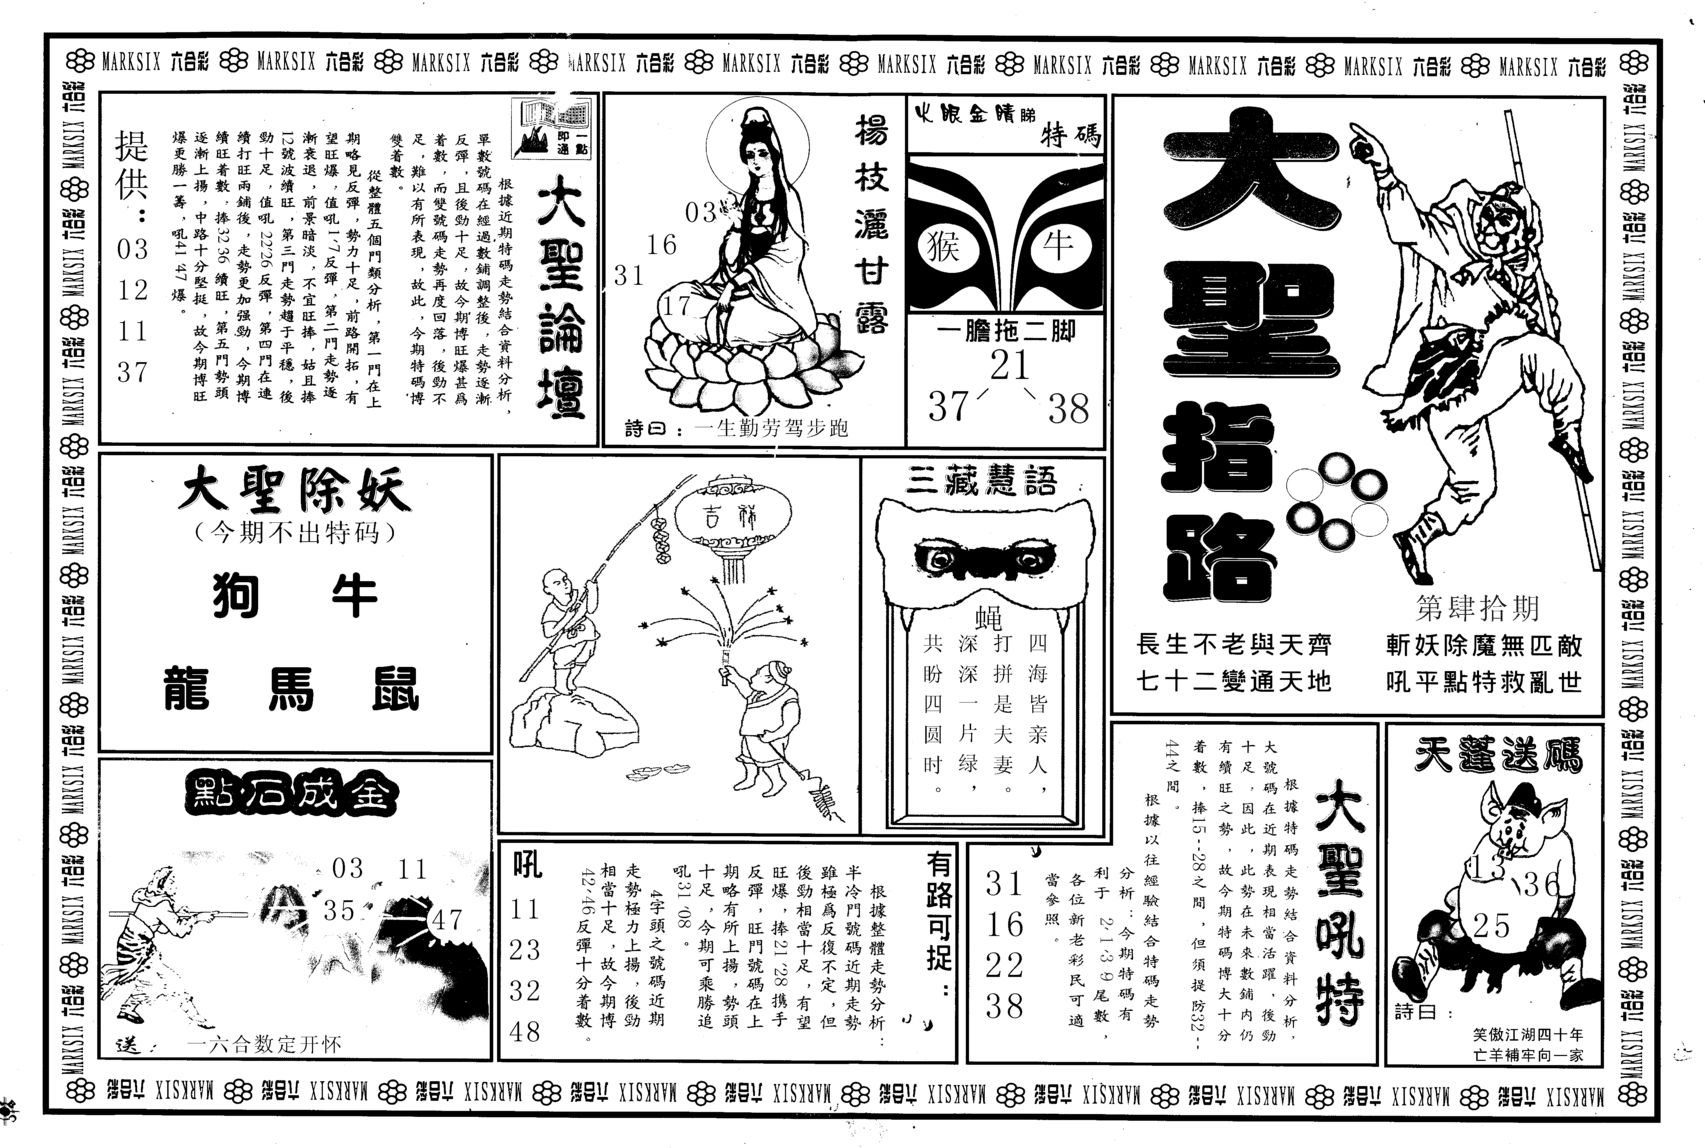 MARKSIX 六合彩 MARKSIX 六合彩 MARKSIX 六合彩 MARKSIX 六合彩 MARKSIX 六合彩 MARKSIX 六合彩 MARKSIX 六合彩 MARKSIX 六合彩 MARKSIX 六合彩 MARKSIX 六合彩
大聖指路
第肆拾期
長生不老與天齊
七十二變通天地
斬妖除魔無匹敵
吼平點特救亂世
火眼金睛睇
特碼
猴 牛
一膽拖二脚
21
37 38
楊枝灑甘露
03
16
31
17
詩曰：一生勤劳驾步跑
一點
即通
大聖論壇
根據近期特碼走勢結合資料分析，
單數號碼在經過數鋪調整後，走勢逐漸
反彈，且後勁十足，故今期博旺爆甚爲
着數，而雙號碼走勢再度回落，後勁不
足，難以有所表現，故此，今期特碼博
雙着數。
從整體五個門類分析，第一門在上
期略見反彈，勢力十足，前路開拓，有
望旺爆，值吼1·7反彈，第二門走勢逐
漸衰退，前景暗淡，不宜旺捧，姑且捧
12號波續旺，第三門走勢趨于平穩，後
勁十足，值吼22·26反彈，第四門在連
續打旺兩鋪後，走勢更加强勁，今期博
續旺着數，捧32·36續旺，第五門勢頭
逐漸上揚，中路十分堅挺，故今期博旺
爆更勝一籌，吼41·47爆。
提供：
03
12
11
37
大聖除妖
（今期不出特码）
狗 牛
龍 馬 鼠
吉祥
三藏慧語
蝇
四海皆亲人，
打拼是夫妻。
深深一片绿，
共盼四圆时。
點石成金
03 11
35
47
送：一六合数定开怀
有路可捉：
根據整體走勢分析：
半冷門號碼近期走勢
雖極爲反復不定，但
後勁相當十足，有望
旺爆，捧21·28携手
反彈，旺門號碼在上
期略有所上揚，勢頭
十足，今期可乘勝追
吼31·08。
4字頭之號碼近期
走勢極力上揚，後勁
相當十足，故今期博
42·46反彈十分着數。
吼
11
23
32
48
大聖吼特
根據特碼走勢結合資料分析，
大號碼在近期表現相當活躍，後勁
十足，因此，此勢在未來數鋪内仍
有續旺之勢，故今期特碼博大十分
着數，捧15--28之間，但須提防32--
44之間。
根據以往經驗結合特碼走勢
分析：今期特碼有
利于 2·1·3·9尾數，
各位新老彩民可適
當參照。
31
16
22
38
天蓬送碼
13
36
25
詩曰：
笑傲江湖四十年
亡羊補牢向一家
MARKSIX 六合彩 MARKSIX 六合彩 MARKSIX 六合彩 MARKSIX 六合彩 MARKSIX 六合彩 MARKSIX 六合彩 MARKSIX 六合彩 MARKSIX 六合彩 MARKSIX 六合彩 MARKSIX 六合彩